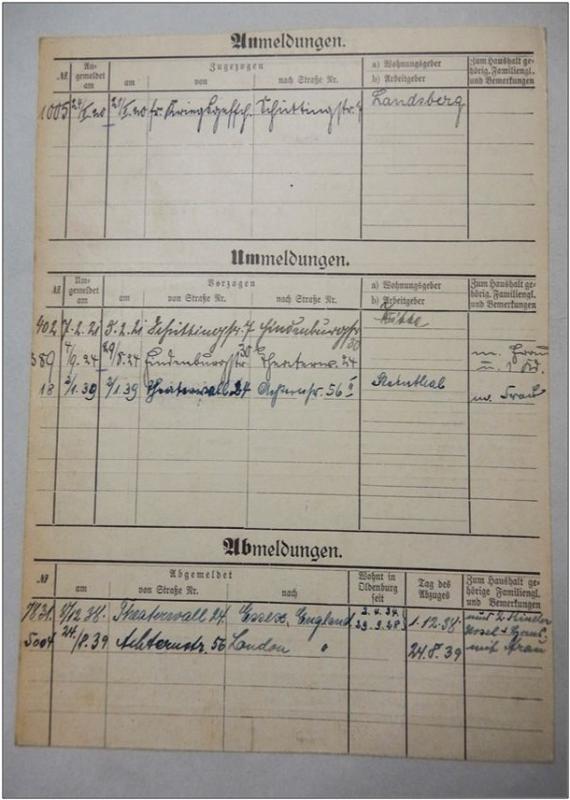 Anmeldungen.
№ An-gemeldet am Zugezogen am von nach Straße Nr. a) Wohnungsgeber b) Arbeitgeber Zum Haushalt ge-hörig. Familiengl. und Bemerkungen
1005 Schüttingstr. 7 Landsberg
Ummeldungen.
№ Um-gemeldet am Verzogen am von Straße Nr. nach Straße Nr. a) Wohnungsgeber b) Arbeitgeber Zum Haushalt ge-hörig. Familiengl. und Bemerkungen
402 7.2.21 5.2.21 Schüttingstr. 7 Hindenburgstr 30
389 Hindenburgstr. 30 Theaterw. 24 m. Frau u. 1 Kd.
18 2/1.39 2/1.39 Theaterwall 24 56 m. Frau
Abmeldungen.
№ Abgemeldet am von Straße Nr. nach Wohnt in Oldenburg seit Tag des Abzuges Zum Haushalt ge-hörige Familiengl. und Bemerkungen
1/12.38. Theaterwall 24 Essex, England 1.12.38. und 2 Kinder
24./8.39 Achternstr. 56 London " 24.8.39 mit Frau